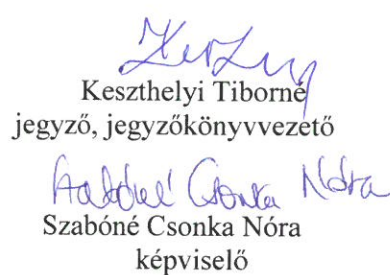 Keszthelyi Tiborné
jegyző, jegyzőkönyvvezető
Szabóné Csonka Nóra
Szabóné Csonka Nóra
képviselő